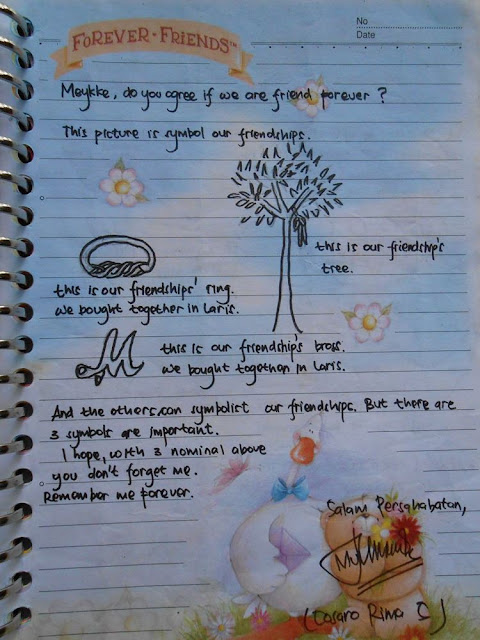 No
Date
FOREVER • FRIENDS™
Meykke, do you agree if we are friend forever ?
This picture is symbol our friendships.
this is our friendship's
tree.
this is our friendships' ring.
we bought together in Laris.
M
this is our friendship's bross.
we bought together in Laris.
And the others can symbolist our friendships. But there are
3 symbols are important.
I hope, with 3 nominal above
you don't forget me.
Remember me forever.
Salam Persahabatan,
Rima S )